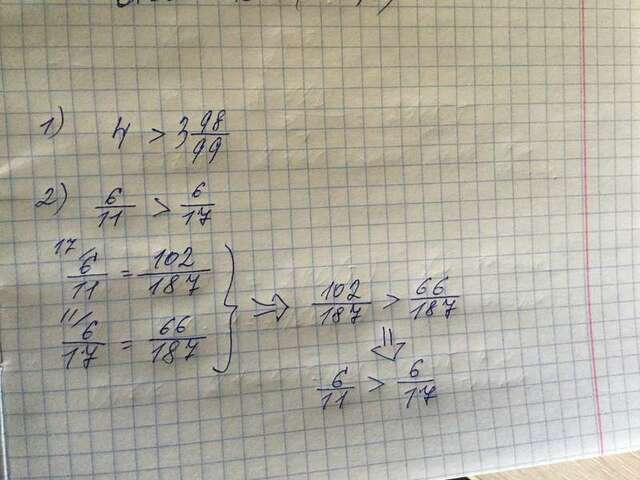 1) 4 > 3 98/99
2) 6/11 > 6/17
17/ 6/11 = 102/187
11/ 6/17 = 66/187
} ⇒ 102/187 > 66/187
⇓
6/11 > 6/17